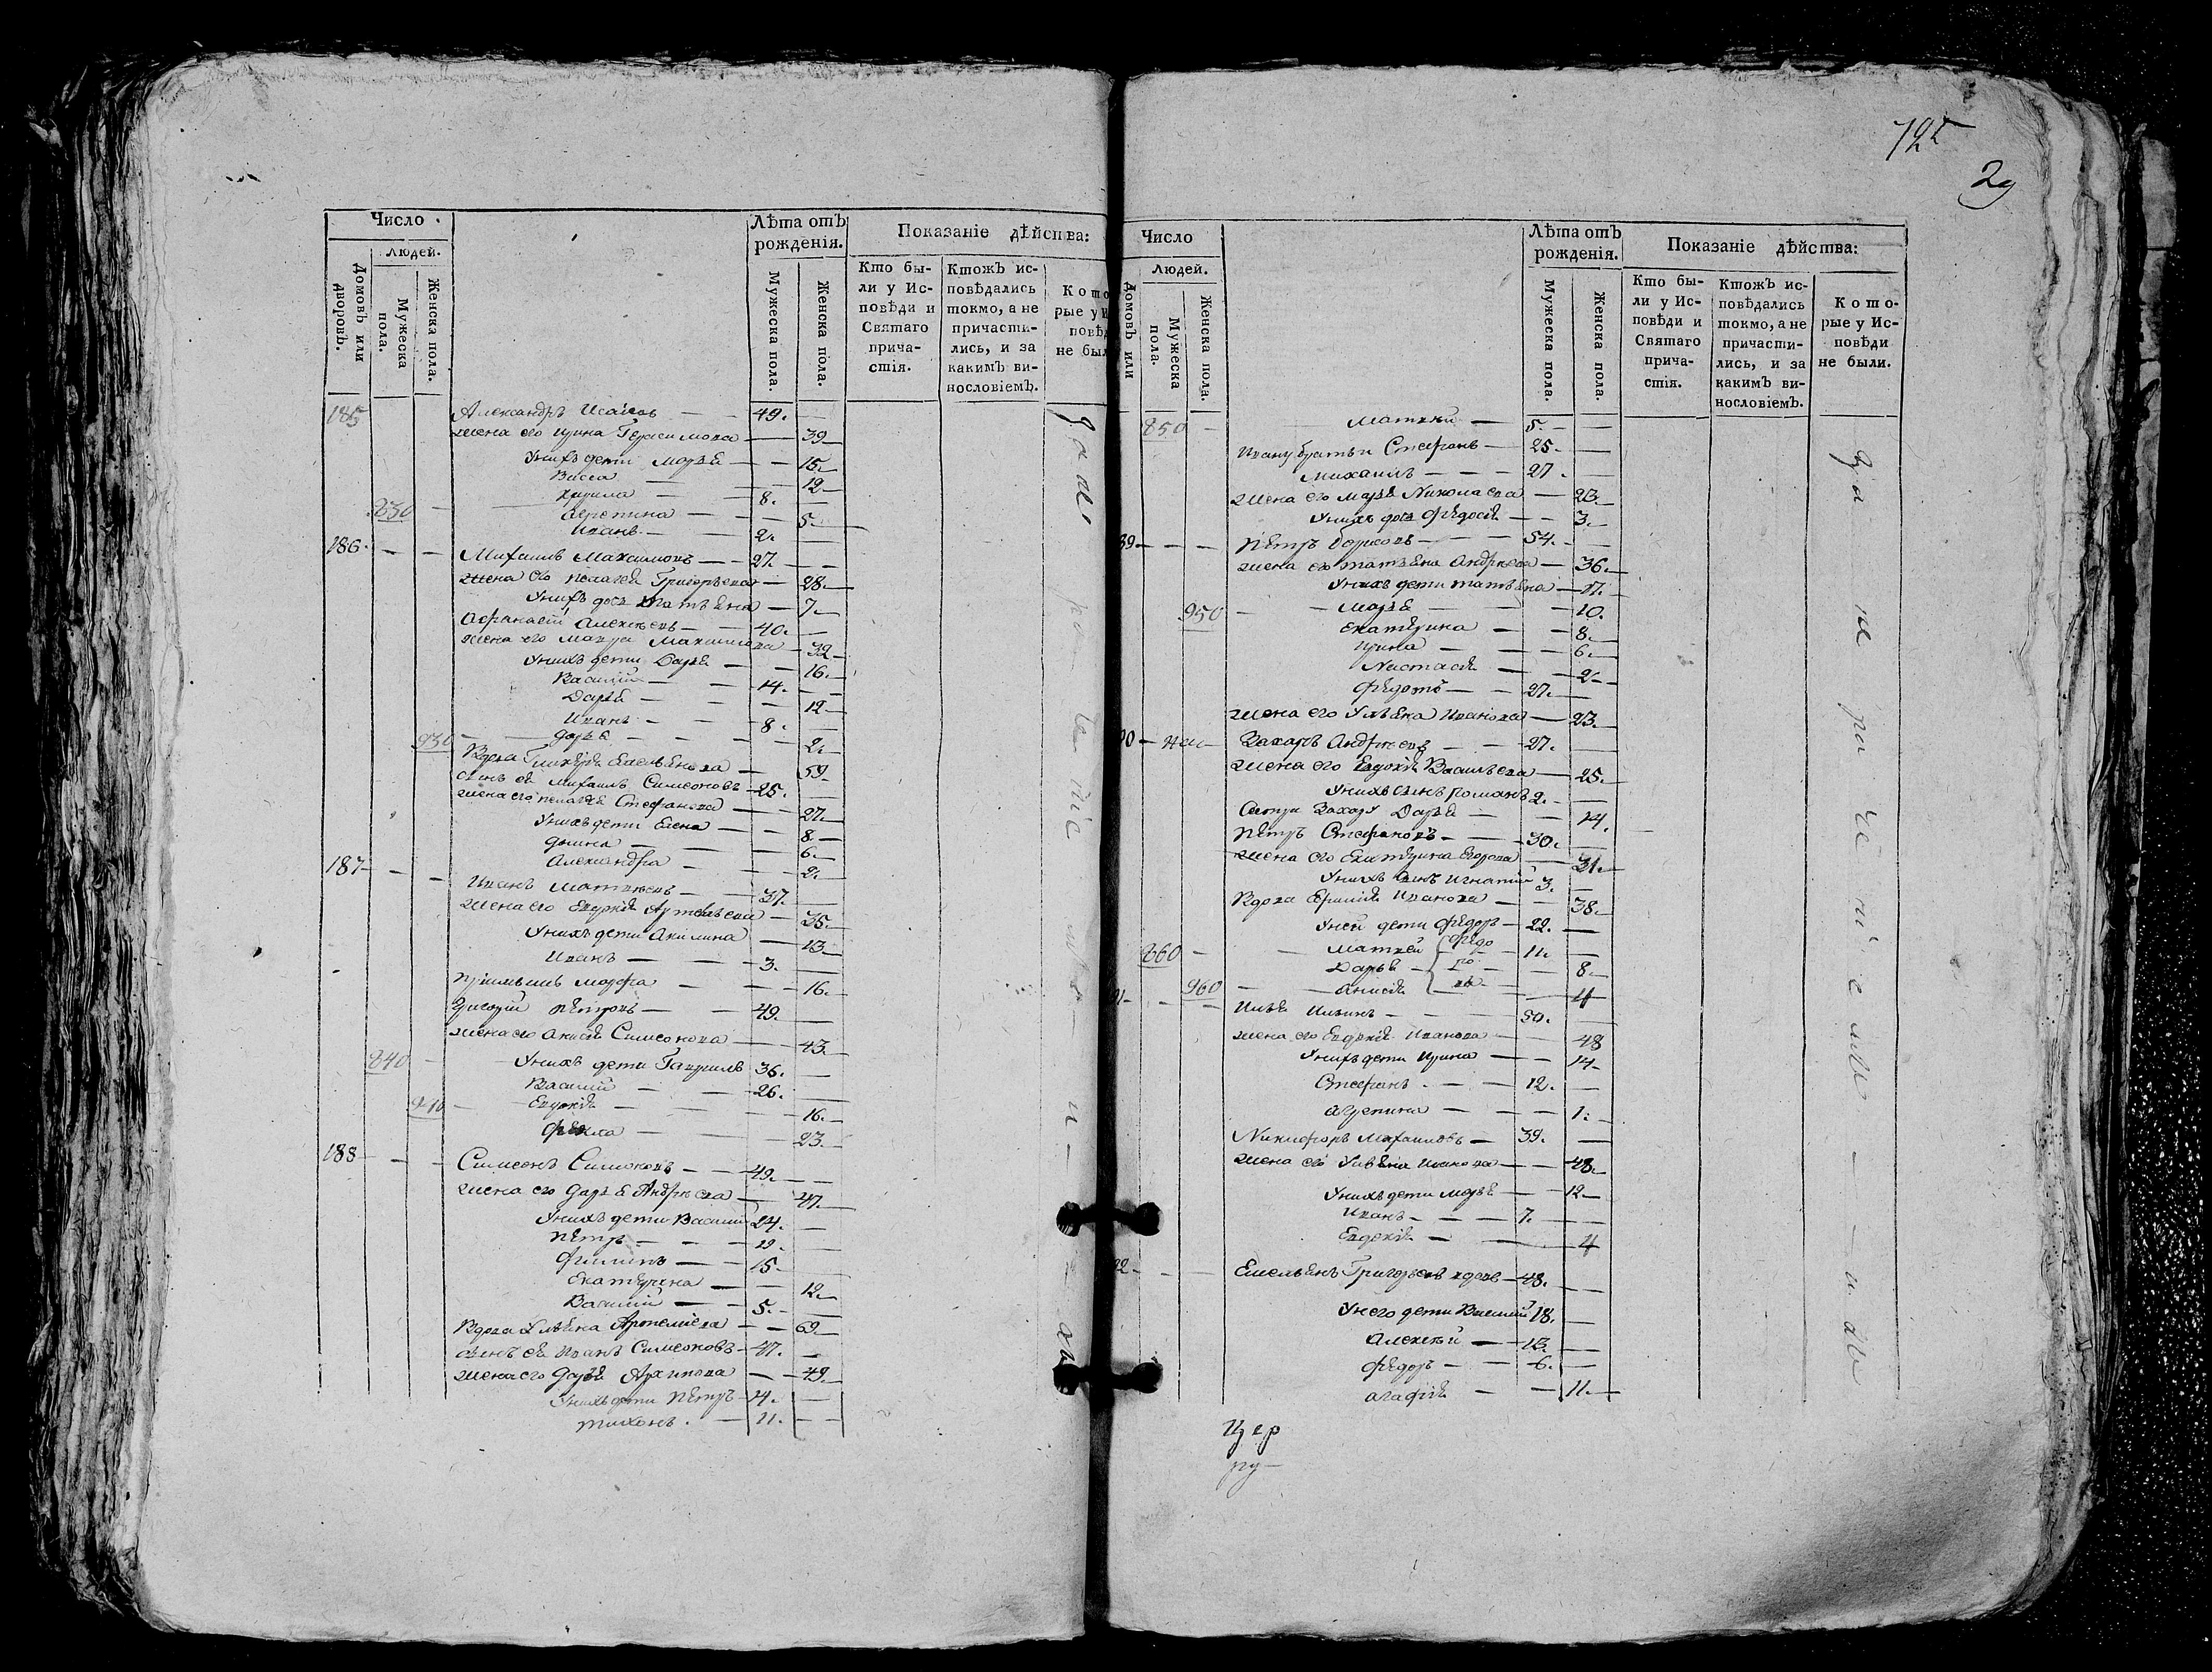 Число
Людей.
Домовъ или дворовъ.
Мужеска пола.
Женска пола.
Лѣта отъ рожденія.
Мужеска пола.
Женска пола.
Показаніе дѣйства:
Кто были у Исповѣди и Святаго причастія.
Ктожъ исповѣдались токмо, а не причастились, и за какимъ винословіемъ.
Кото
рые у И
повѣд
не был
185 Александръ Исаковъ — 49. —
жена его ирина Герасимова — 39
Унихъ дети Марья — 15.
Васса — 12
Кирила — 8.
830 Агрепина — 5.
Иванъ — 2.
186 Михаилъ Максимовъ — 27.
жена его пелагея Григорьева — 28.
Унихъ дочь татьяна — 7.
Афанасей Алексеевъ — 40.
жена его Мавра Максимова — 32
Унихъ дети Дарья — 16.
Василий — 14.
Дарья — 12
Иванъ — 8.
930 дарья — 2.
Вдова Гликерья Емельянова — 59.
сынъ ея Михаилъ Симеоновъ — 25.
жена его пелагея Стефанова — 27.
Унихъ дети Елена — 8.
ирина — 6.
Александра — 2.
187 Иванъ Матвеевъ — 37.
жена его Евдокія — 35.
Унихъ дети Акилина — 13.
Иванъ — 3.
марфа — 16.
Петровъ — 49.
жена его Анисія Симеонова — 43.
840 Унихъ дети Гаврилъ 36.
Василий — 26.
940 Евдокія — 16.
Фекла — 23.
188 Симеонъ Симеоновъ — 49.
жена его дарья Андреева — 47.
Унихъ дети Василий 24.
Петръ — 19.
Филипъ — 15.
Екатерина — 12.
Василий — 5.
Вдова Ульяна Артемиева — 69.
сынъ ея Иванъ Симеоновъ — 47.
жена его Дарья Архипова — 49.
Унихъ дети Петръ — 14.
тихонъ. — 11.
725
29
Число
Людей.
Домовъ или
Мужеска пола.
Женска пола.
Лѣта отъ рожденія.
Мужеска пола.
Женска пола.
Показаніе дѣйства:
Кто были у Исповѣди и Святаго причастія.
Ктожъ исповѣдались токмо, а не причастились, и за какимъ винословіемъ.
Которые у Исповѣди не были.
850 Матвей — 5.
Ивану братьи Стефанъ — 25.
Михаилъ — 27.
жена его Марья Николаева — 23.
Унихъ дочь Федосія — 3.
89 Петръ Борисовъ — 54.
жена его татьяна Андреева — 36.
Унихъ дети татьяна — 17.
950 Марья — 10.
екатерина — 8.
ирина — 6.
Настасія — 2.
Федотъ — 27.
жена его Ульяна Иванова — 23.
90 Захаръ Андреевъ — 27.
жена его Евдокія Васильева — 25.
Унихъ сынъ романъ 2.
Сестра Захару Дарья — 14.
Петръ Стефановъ — 30.
жена его Екатерина Егорова — 31.
Унихъ сынъ Игнатий 3.
Вдова Ивanova — 38.
Уней дети Федоръ — 22.
860 Матвей — 11.
Дарья — 8.
960 Анисія — 4
91 Илья Ильинъ — 50.
жена его Евдокія Иванова — 48
Унихъ дети Ирина — 14
Стефанъ — 12.
агрепина — 1.
Никифоръ Михаиловъ — 39.
жена его Ульяна Иванова — 48.
Унихъ дети марья — 12
Иванъ — 7.
Евдокія — 4
92 Емельянъ Григорьевъ вдовъ — 48.
Унего дети Василий 18.
Алексей — 13.
Федоръ — 6.
агафія — 11.
Цер